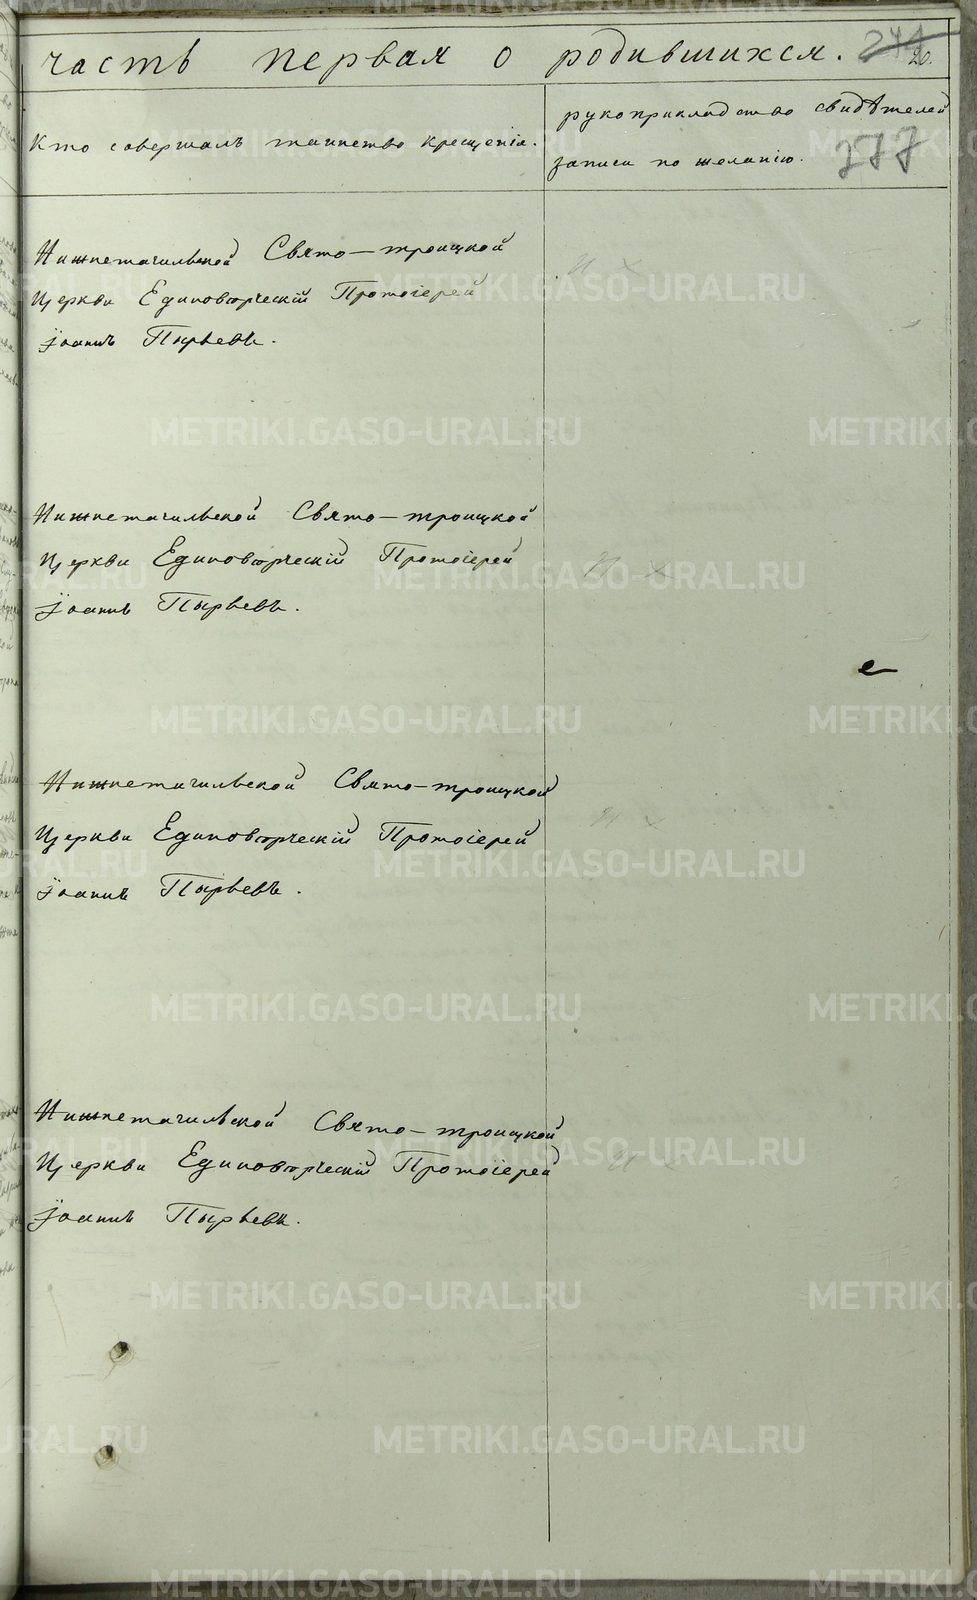 часть первая о родившихся. 241 20.
Кто совершалъ таинство крещенія.
рукоприкладство свидѣтелей
записи по желанію. 277
Нижнетагильской Свято-троицкой
Церкви Единовѣрческій Протоіерей
Іоаннъ Пырьевъ.
Нижнетагильской Свято-троицкой
Церкви Единовѣрческій Протоіерей
Іоаннъ Пырьевъ.
Нижнетагильской Свято-троицкой
Церкви Единовѣрческій Протоіерей
Іоаннъ Пырьевъ.
Нижнетагильской Свято-троицкой
Церкви Единовѣрческій Протоіерей
Іоаннъ Пырьевъ.
METRIKI.GASO-URAL.RU